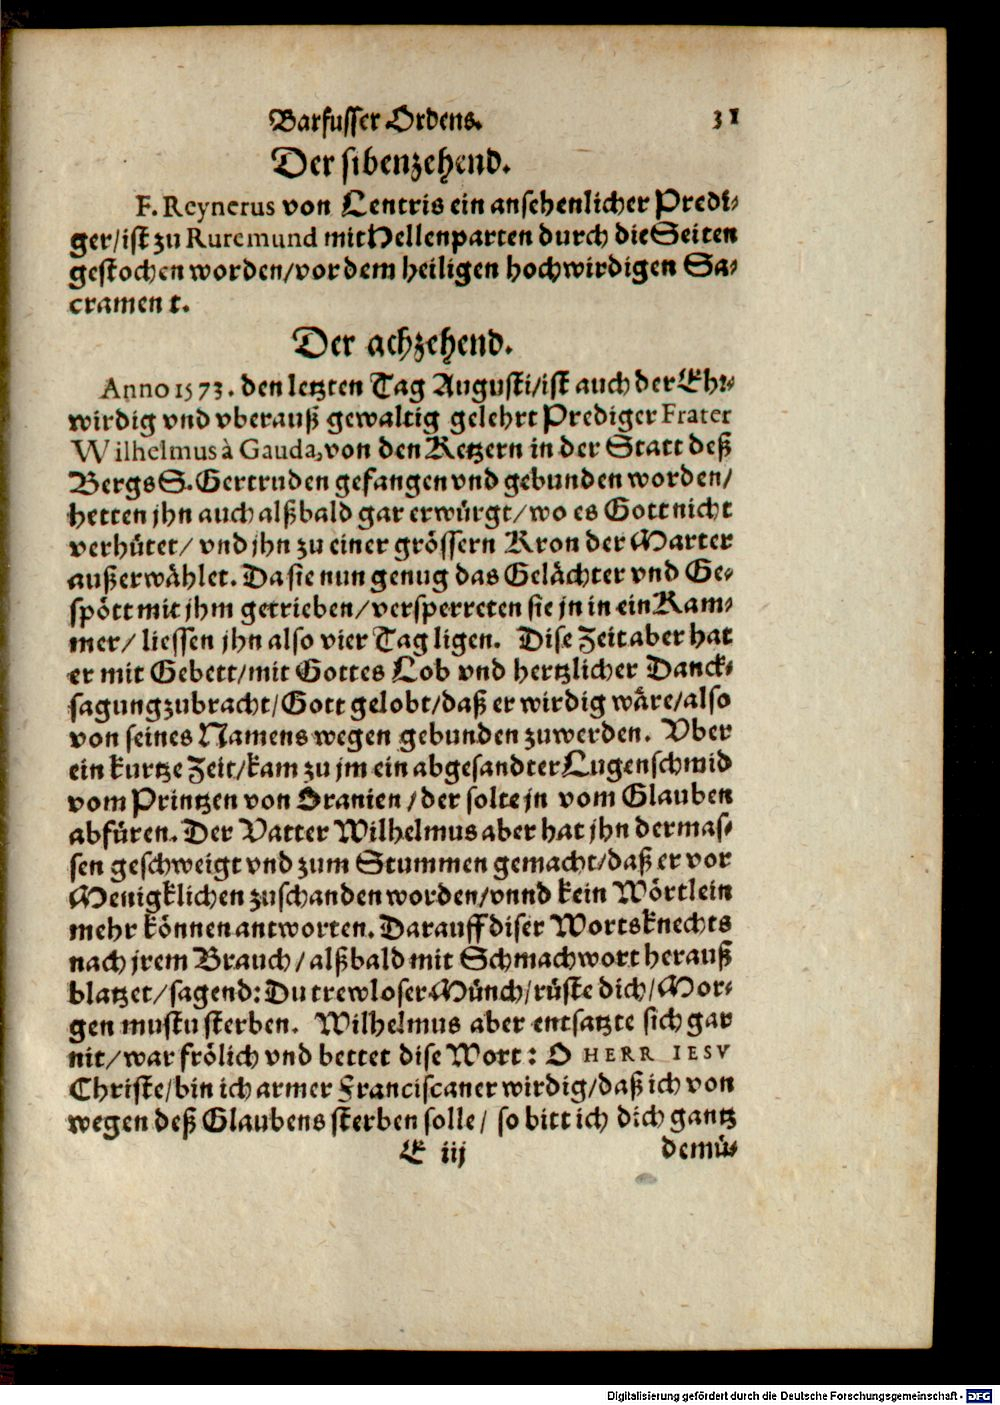 Barfusser Ordens. 31
Der sibenzehend.
F. Reynerus von Lentris ein ansehenlicher Predi-
ger/ist zu Ruremund mit Hellenparten durch die Seiten
gestochen worden/vor dem heiligen hochwirdigen Sa-
crament.
Der achzehend.
Anno 1573. den letzten Tag Augusti/ist auch der Ehr-
wirdig vnd vberauß gewaltig gelehrt Prediger Frater
Wilhelmus à Gauda, von den Ketzern in der Statt deß
Bergs S. Gertruden gefangen vnd gebunden worden/
hetten jhn auch alßbald gar erwürgt/wo es Gott nicht
verhütet/ vnd jhn zu einer grössern Kron der Marter
außerwählet. Da sie nun genug das Gelächter vnd Ge-
spött mit jhm getrieben/versperreten sie jn in ein Kam-
mer/ liessen jhn also vier Tag ligen. Dise Zeit aber hat
er mit Gebett/mit Gottes Lob vnd hertzlicher Danck-
sagung zubracht/Gott gelobt/daß er wirdig wäre/also
von seines Namens wegen gebunden zuwerden. Vber
ein kurtze Zeit/kam zu jm ein abgesandter Lugenschmid
vom Printzen von Oranien/der solte jn vom Glauben
abfüren. Der Vatter Wilhelmus aber hat jhn dermas-
sen geschweigt vnd zum Stummen gemacht/daß er vor
Menigklichen zuschanden worden/vnnd kein Wörtlein
mehr können antworten. Darauff diser Wortsknechts
nach jrem Brauch/alßbald mit Schmachwort herauß
blatzet/sagend: Du trewloser Münch/rüste dich/Mor-
gen mustu sterben. Wilhelmus aber entsatzte sich gar
nit/war frölich vnd bettet dise Wort: O HERR IESV
Christe/bin ich armer Franciscaner wirdig/daß ich von
wegen deß Glaubens sterben solle/ so bitt ich dich gantz
E iij demü-
Digitalisierung gefördert durch die Deutsche Forschungsgemeinschaft - DFG